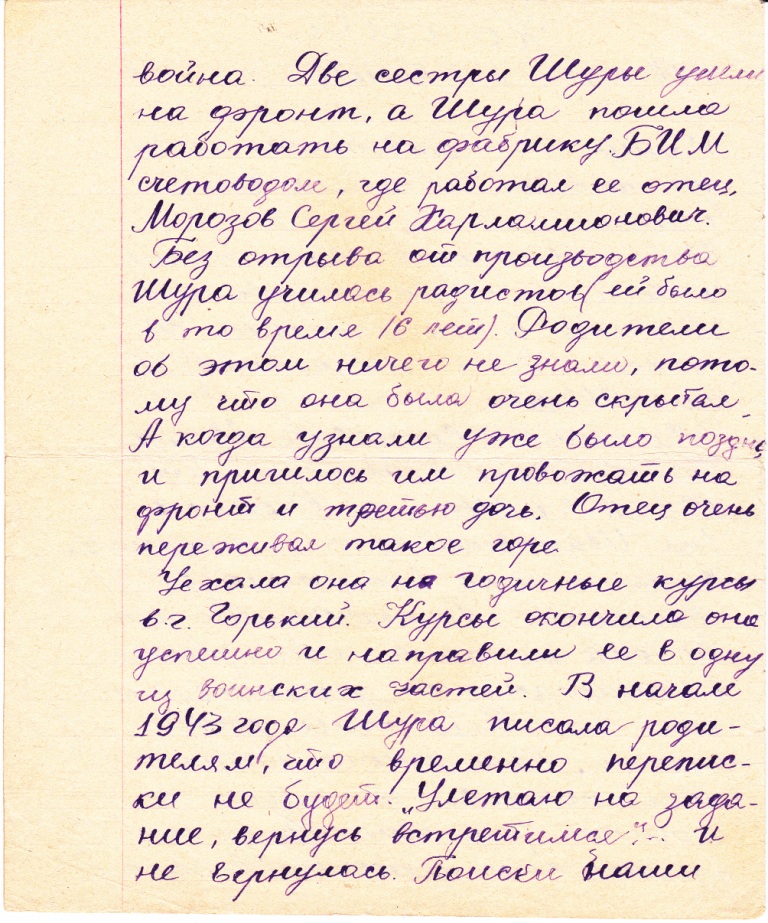 война. Две сестры Шуры ушли
на фронт, а Шура пошла
работать на фабрику БИМ
счетоводом, где работал ее отец,
Морозов Сергей Харлампионович.
Без отрыва от производства
Шура училась радистов (ей было
в то время 16 лет). Родители
об этом ничего не знали, пото-
му что она была очень скрытая.
А когда узнали уже было поздно,
и пришлось им провожать на
фронт и третью дочь. Отец очень
переживал такое горе.
Уехала она на годичные курсы
в г. Горький. Курсы окончила она
успешно и направили ее в одну
из воинских частей. В начале
1943 года Шура писала роди-
телям, что временно перепис-
ки не будет. „Улетаю на зада-
ние, вернусь встретимся"... и
не вернулась. Поиски наши